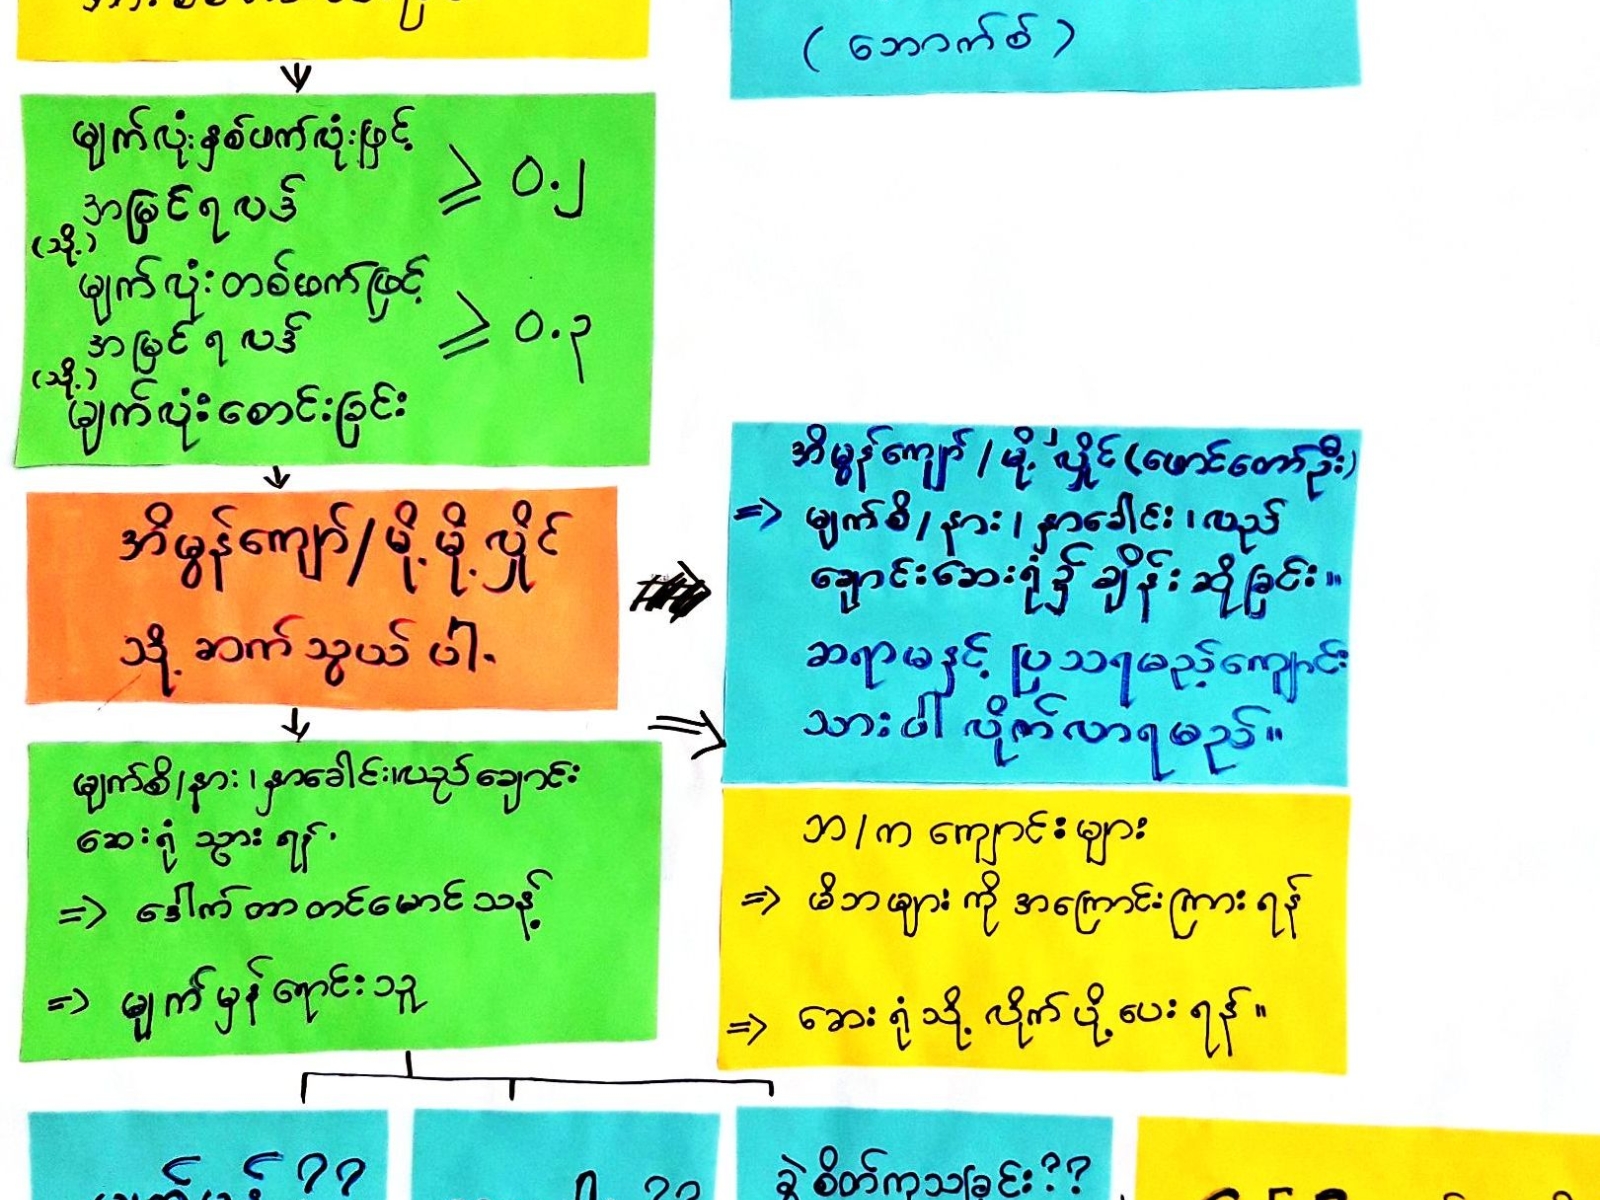 ( ဘောက်စ် )
မျက်လုံးနှစ်ဖက်လုံးဖြင့်
အမြင်ရလဒ် ⩾ ၀.၂
(သို့)
မျက်လုံးတစ်ဖက်ဖြင့်
အမြင်ရလဒ် ⩾ ၀.၃
(သို့)
မျက်လုံးစောင်းခြင်း
အိမွန်ကျော်/မို့မို့လှိုင်
သို့ ဆက်သွယ်ပါ.
အိမွန်ကျော်/မို့ လှိုင်(ဖောင်တော်ဦး)
=> မျက်စိ/နား၊နှာခေါင်း၊လည်
ချောင်းဆေးရုံ၌ ချိန်းဆိုခြင်း။
ဆရာမနှင့် ပြသရမည့်ကျောင်း
သားပါ လိုက်လာရမည်။
မျက်စိ/နား၊နှာခေါင်း၊လည်ချောင်း
ဆေးရုံ သွားရန်.
=> ဒေါက်တာတင်မောင်သန့်
=> မျက်မှန်ရောင်းသူ
ဘ/က ကျောင်းများ
=> မိဘများကို အကြောင်းကြားရန်
=> ဆေးရုံသို့ လိုက်ပို့ပေးရန်။
မျက်မှန်??
??
ခွဲစိတ်ကုသခြင်း??